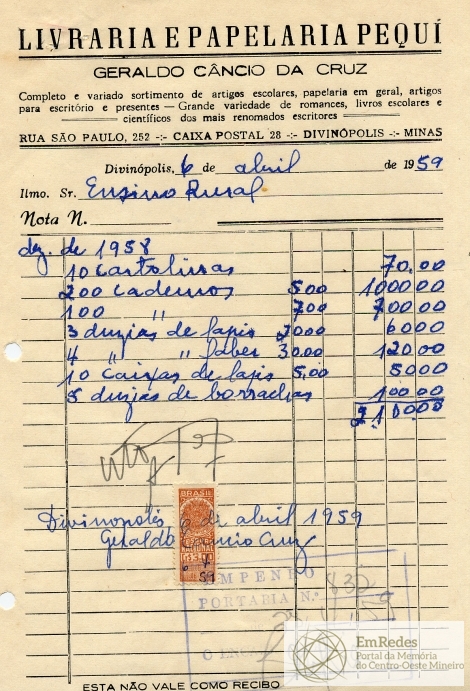 LIVRARIA E PAPELARIA PEQUÍ
GERALDO CÂNCIO DA CRUZ
Completo e variado sortimento de artigos escolares, papelaria em geral, artigos
para escritório e presentes — Grande variedade de romances, livros escolares e
científicos dos mais renomados escritores
RUA SÃO PAULO, 252 -:- CAIXA POSTAL 28 -:- DIVINÓPOLIS -:- MINAS
Divinópolis, 6 de abril de 1959
Ilmo. Sr. Ensino Rural
Nota N.
dez. de 1958
10 cartolinas 70,00
200 cadernos 5,00 1000,00
100 " 7,00 700,00
3 duzias de lapis 20,00 60,00
4 " " faber 30,00 120,00
10 caixas de lapis 5,00 50,00
5 duzias de borrachas 100,00
2.100,00
BRASIL
Divinopolis, 6 de abril 1959
Geraldo Cancio Cruz
NACIONAL
EMPENHO
PORTARIA N.º
EmRedes
Portal da Memória
do Centro-Oeste Mineiro
ESTA NÃO VALE COMO RECIBO